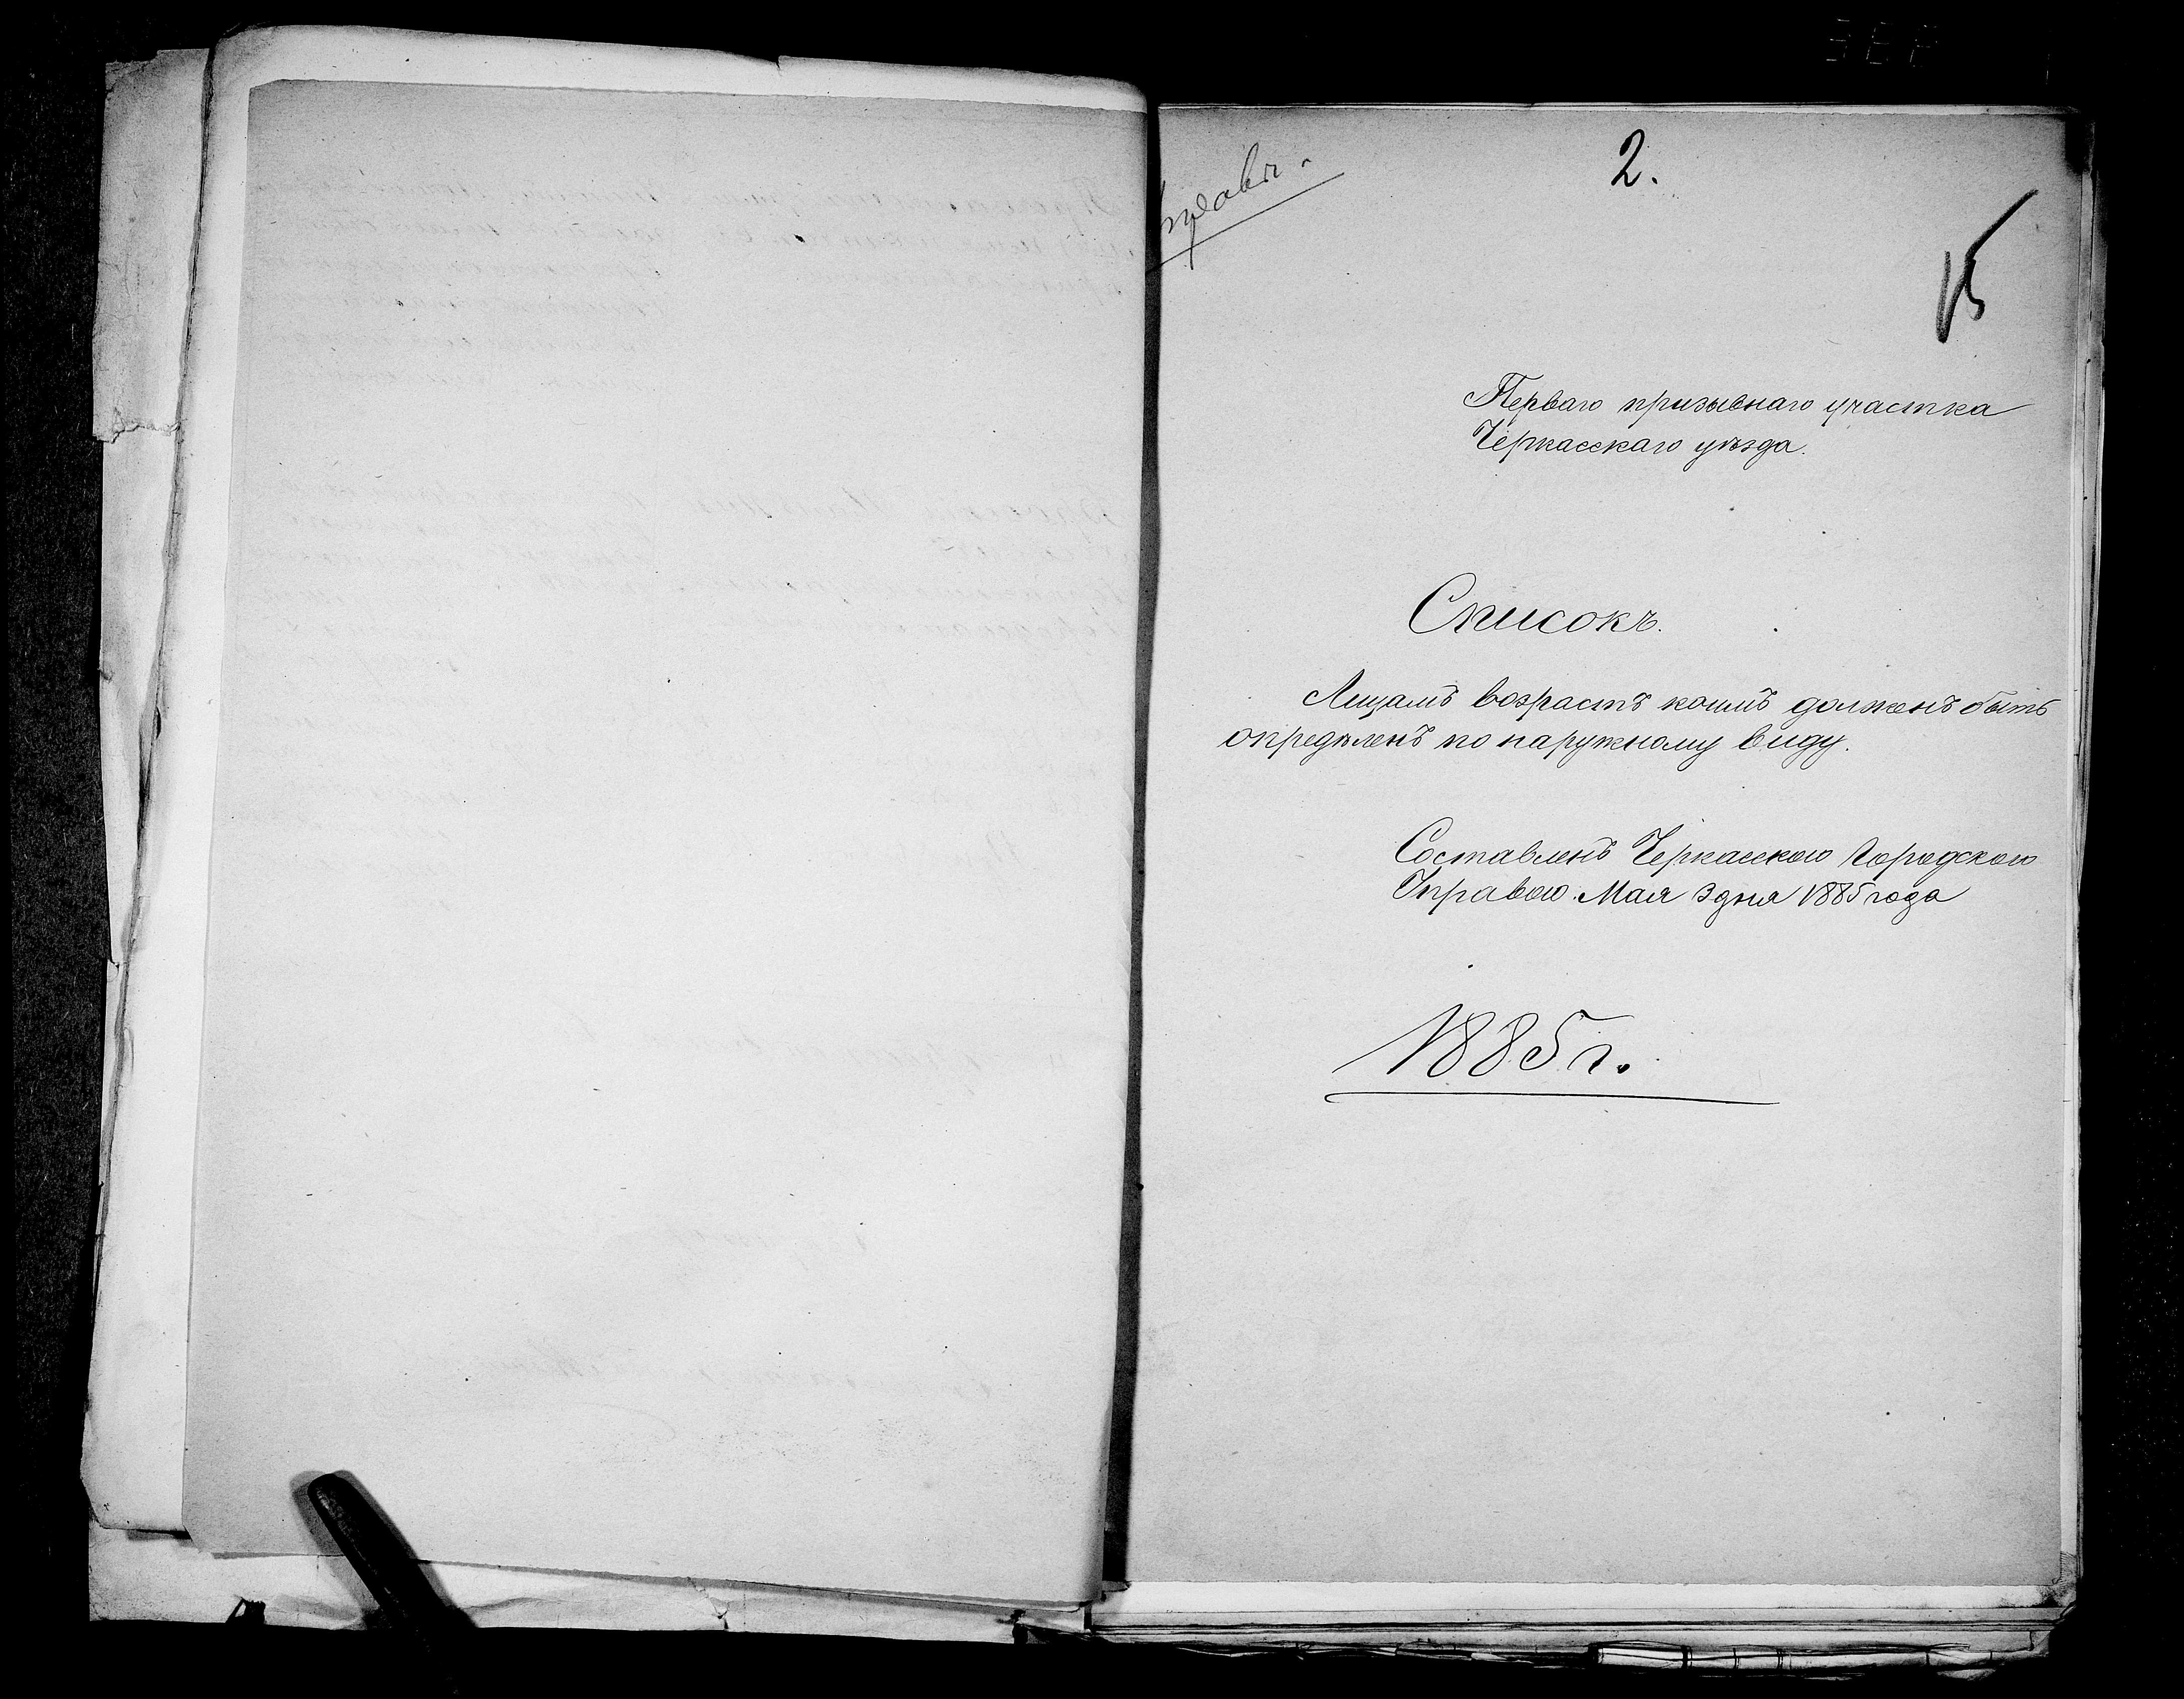 2.
15
Перваго призывнаго участка
Черкасскаго уѣзда.
Списокъ.
Лицамъ возрастъ коимъ долженъ быть
опредѣленъ по наружному виду.
Составленъ Черкасскою Городскою
Управою. Мая 3 дня 1885 года
1885 г.